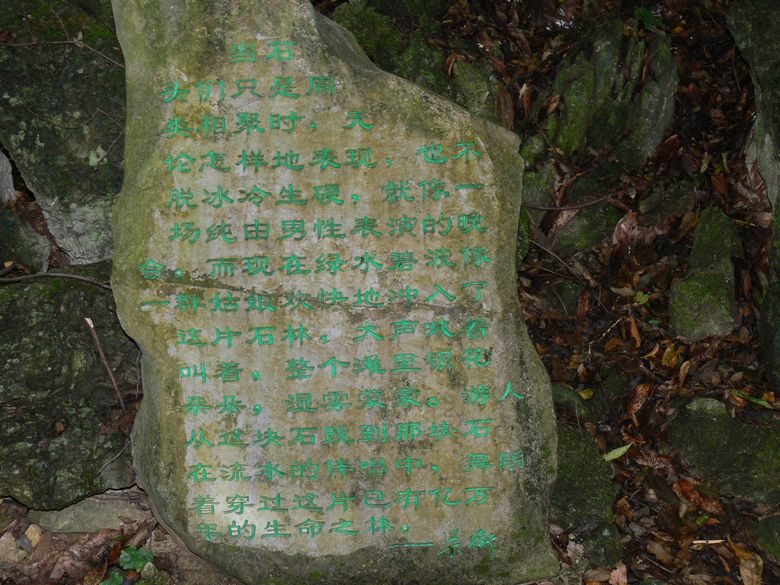 当石
头们只是同
类相聚时，无
论怎样地表现，也不
脱冰冷生硬，就像一
场纯由男性表演的晚
会。而现在绿水碧波像
一群姑娘欢快地冲入了
这片石林，大声喊着
叫着，整个滩里织花
朵朵，湿雾蒙蒙。游人
从这块石跳到那块石
在流水的伴唱中，舞蹈
着穿过这片已有亿万
年的生命之体。
——梁衡